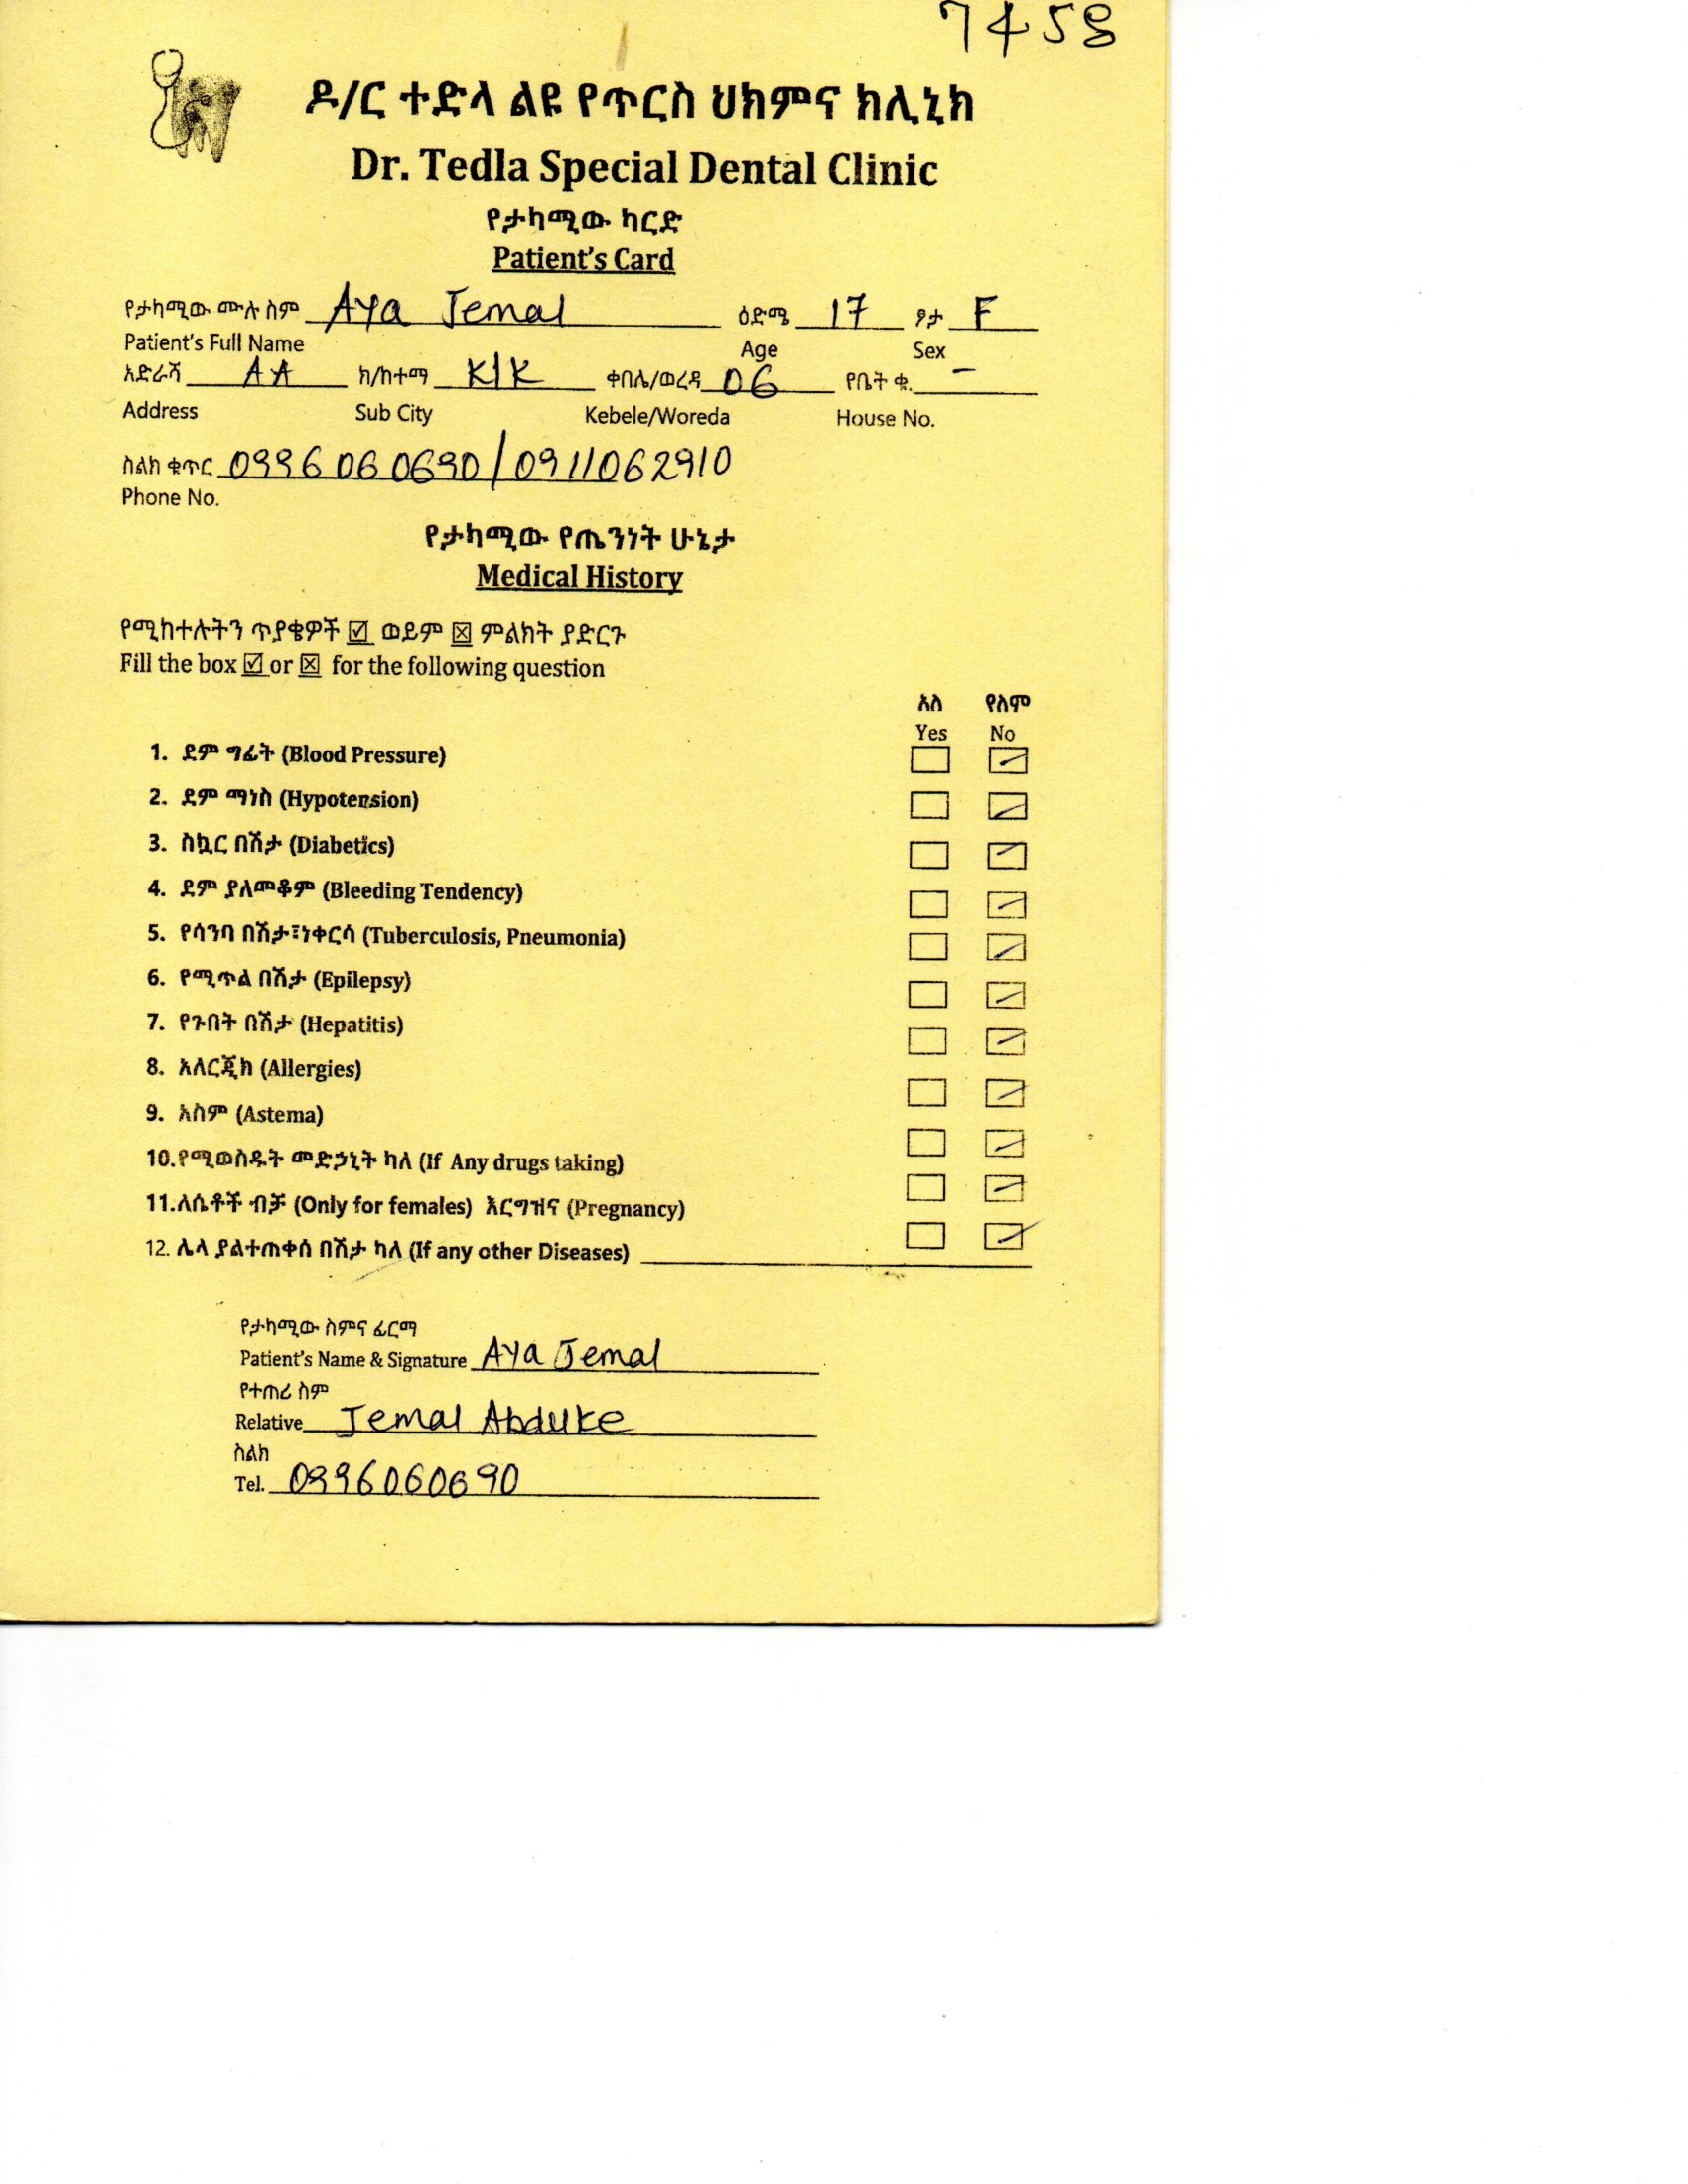 7458
ዶ/ር ተድላ ልዩ የጥርስ ህክምና ክሊኒክ
Dr. Tedla Special Dental Clinic
የታካሚው ካርድ
Patient's Card
የታካሚው ሙሉ ስም Aya Jemal ዕድሜ 17 ፆታ F
Patient's Full Name Age Sex
አድራሻ AA ክ/ከተማ K/K ቀበሌ/ወረዳ 06 የቤት ቁ. -
Address Sub City Kebele/Woreda House No.
ስልክ ቁጥር 0996060690/0911062910
Phone No.
የታካሚው የጤንነት ሁኔታ
Medical History
የሚከተሉትን ጥያቄዎች ☑ ወይም ☒ ምልክት ያድርጉ
Fill the box ☑ or ☒ for the following question
አለ የለም
Yes No
1. ደም ግፊት (Blood Pressure) ☐ ☑
2. ደም ማነስ (Hypotension) ☐ ☑
3. ስኳር በሽታ (Diabetics) ☐ ☑
4. ደም ያለመቆም (Bleeding Tendency) ☐ ☑
5. የሳንባ በሽታ፣ነቀርሳ (Tuberculosis, Pneumonia) ☐ ☑
6. የሚጥል በሽታ (Epilepsy) ☐ ☑
7. የጉበት በሽታ (Hepatitis) ☐ ☑
8. አለርጂክ (Allergies) ☐ ☑
9. አስም (Astema) ☐ ☑
10.የሚወስዱት መድኃኒት ካለ (If Any drugs taking) ☐ ☑
11.ለሴቶች ብቻ (Only for females) እርግዝና (Pregnancy) ☐ ☑
12. ሌላ ያልተጠቀሰ በሽታ ካለ (If any other Diseases)
የታካሚው ስምና ፊርማ
Patient's Name & Signature Aya Jemal
የተጠሪ ስም
Relative Jemal Abduke
ስልክ
Tel. 0996060690